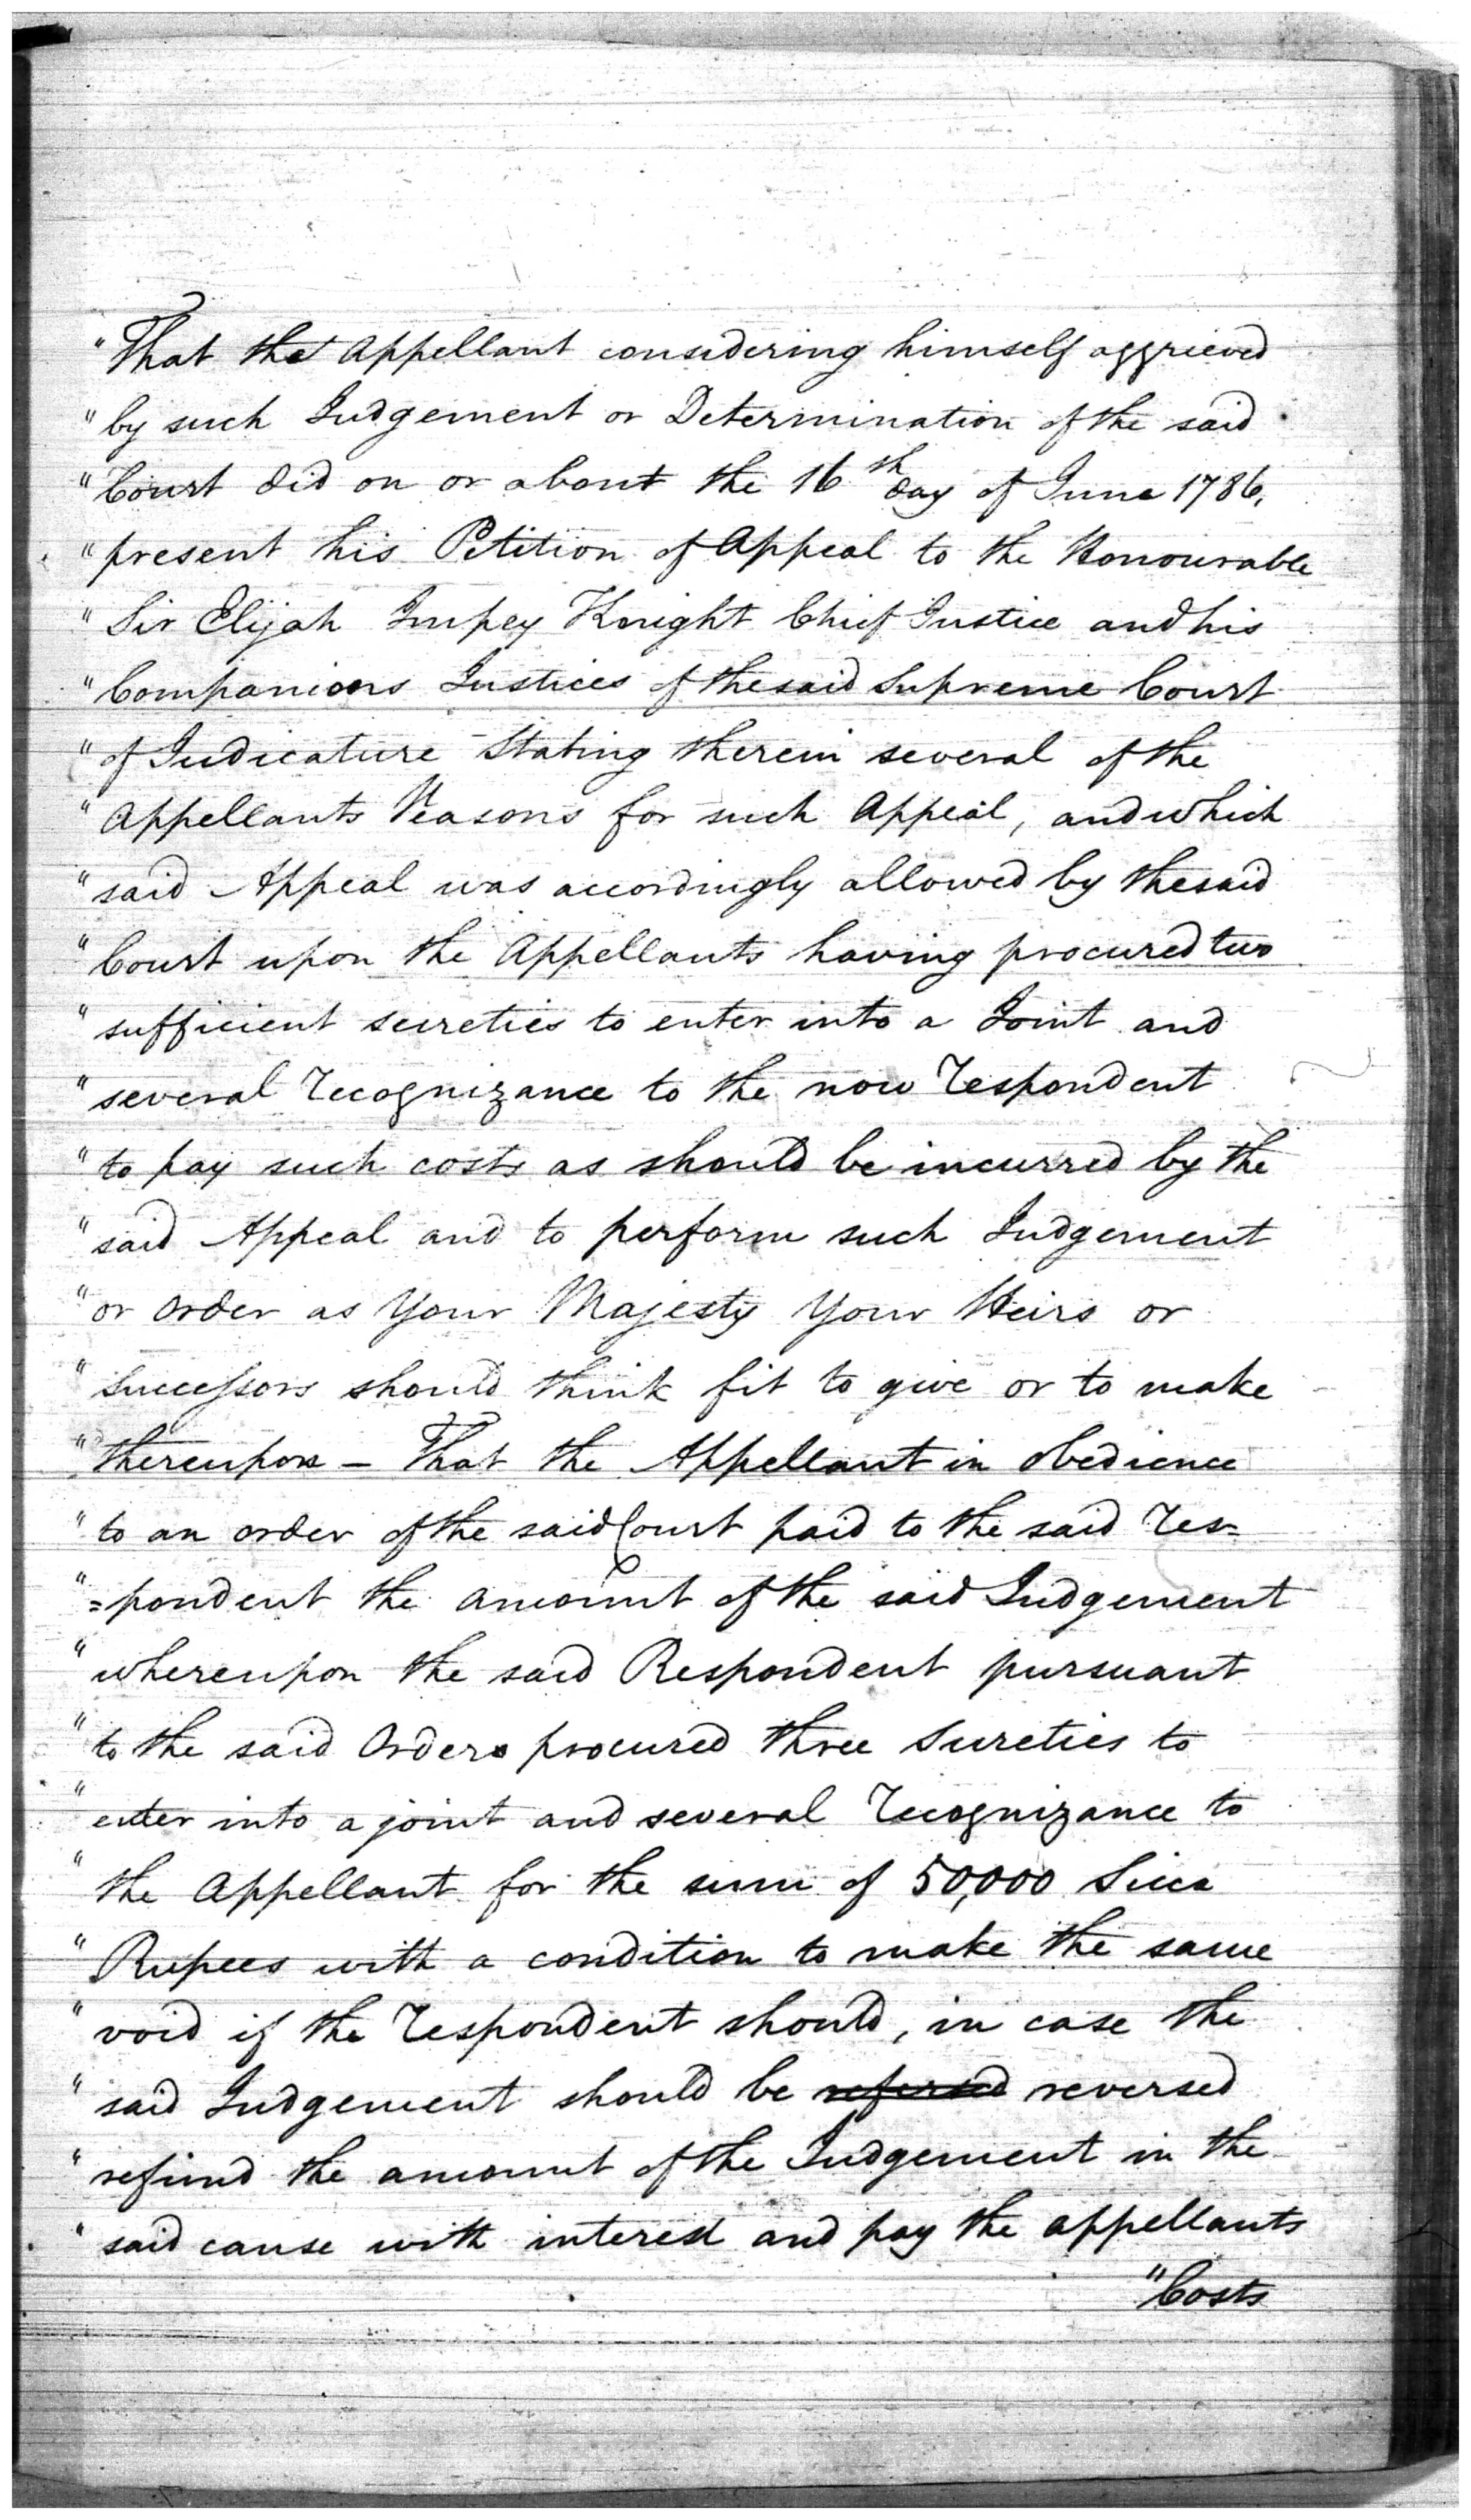 "That the Appellant considering himself aggrieved
"by such Judgement or Determination of the said
"Court did on or about the 16th day of June 1786,
"present his Petition of Appeal to the Honourable
"Sir Elijah Impey Knight Chief Justice and his
"Companions Justices of the said Supreme Court
"of Judicature Stating therein several of the
"Appellants Reasons for such Appeal, and which
"said Appeal was accordingly allowed by the said
"Court upon the Appellants having procured two
"sufficient secreties to enter into a Joint and
"several Recognizance to the now Respondent
"to pay such costs as should be incurred by the
"said Appeal and to perform such Judgement
"or order as Your Majesty Your Heirs or
"Successors should think fit to give or to make
"thereupon – That the Appellant in obedience
"to an order of the said Court paid to the said Res=
"=pondent the amount of the said Judgement
"whereupon the said Respondent pursuant
"to the said Orders procured three Sureties to
"enter into a joint and several Recognizance to
"the Appellant for the sum of 50,000 Sicca
"Rupees with a condition to make the same
"void if the Respondent should, in case the
"said Judgement should be reversed
"refund the amount of the Judgement in the
"said cause with interest and pay the appellants
"Costs